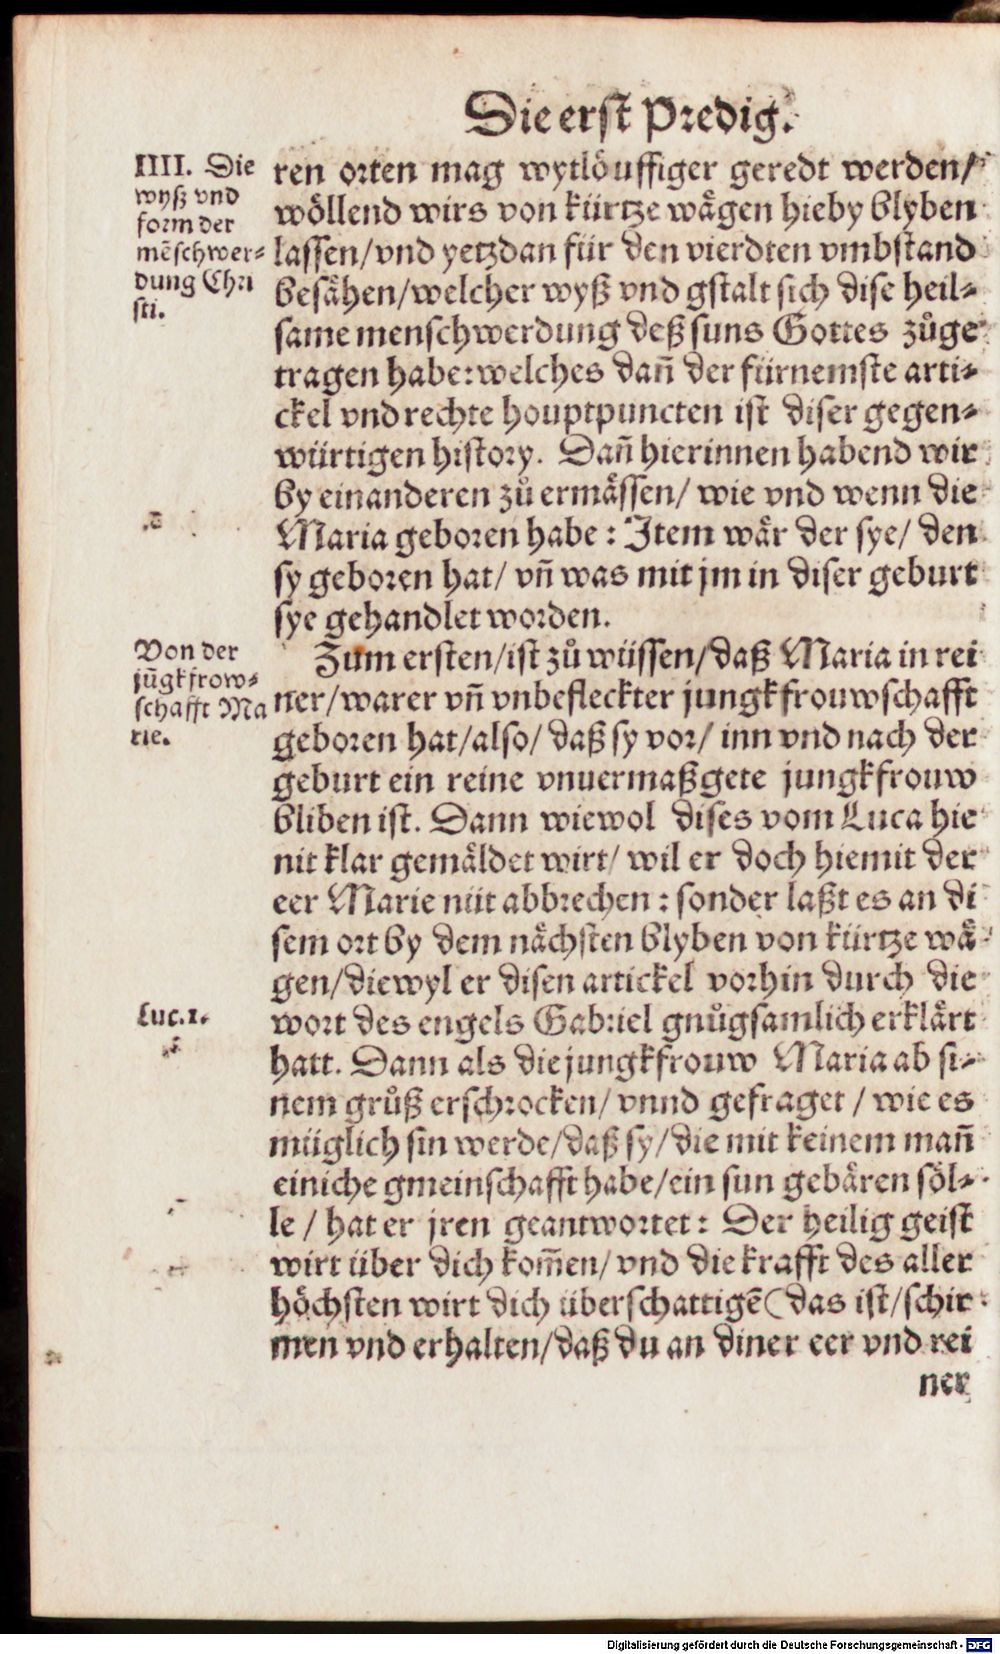 Die erst Predig.
IIII. Die
wyß vnd
form der
mēschwer-
dung Chri
sti.
ren orten mag wytlöuffiger geredt werden/
wöllend wirs von kürtze wägen hieby blyben
lassen/vnd yetzdan für den vierdten vmbstand
besähen/welcher wyß vnd gstalt sich dise heil-
same menschwerdung deß suns Gottes zůge
tragen habe:welches dañ der fürnemste arti-
ckel vnd rechte houptpuncten ist diser gegen-
würtigen history. Dañ hierinnen habend wir
by einanderen zů ermässen/ wie vnd wenn die
Maria geboren habe: Item wär der sye/ den
sy geboren hat/ vñ was mit jm in diser geburt
sye gehandlet worden.
Von der
jūgkfrow-
schafft Ma
rie.
Zum ersten/ist zů wüssen/daß Maria in rei
ner/warer vñ vnbefleckter jungkfrouwschafft
geboren hat/also/daß sy vor/ inn vnd nach der
geburt ein reine vnuermaßgete jungkfrouw
bliben ist. Dann wiewol dises vom Luca hie
nit klar gemäldet wirt/ wil er doch hiemit der
eer Marie nüt abbrechen: sonder laßt es an di
sem ort by dem nächsten blyben von kürtze wä-
gen/diewyl er disen artickel vorhin durch die
Luc.1.
wort des engels Gabriel gnůgsamlich erklärt
hatt. Dann als die jungkfrouw Maria ab si-
nem grůß erschrocken/ vnnd gefraget / wie es
müglich sin werde/daß sy/die mit keinem mañ
einiche gmeinschafft habe/ein sun gebären söl-
le / hat er jren geantwortet: Der heilig geist
wirt über dich kom̃en/ vnd die krafft des aller
höchsten wirt dich überschattigē(das ist/schir
men vnd erhalten/daß du an diner eer vnd rei
ner
Digitalisierung gefördert durch die Deutsche Forschungsgemeinschaft - DFG